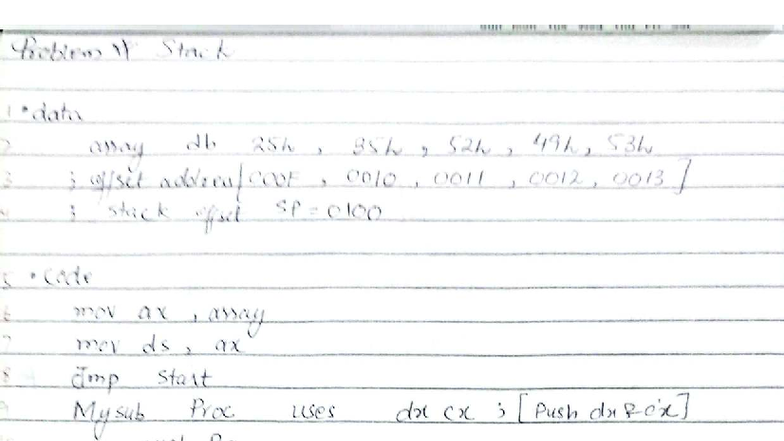 Problem # Stack
1 .data
2 array db 25h, 35h, 52h, 49h, 53h
3 ; offset address [000F, 0010, 0011, 0012, 0013]
4 ; stack offset SP = 0100
5 .code
6 mov ax, array
7 mov ds, ax
8 Jmp start
9 Mysub Proc uses dx cx ; [Push dx & cx]